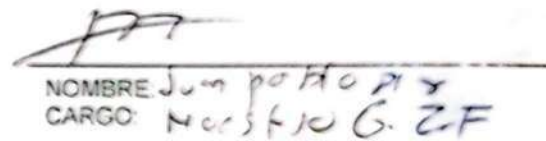 NOMBRE: Juan pablo
CARGO: Maestro G. Z.F